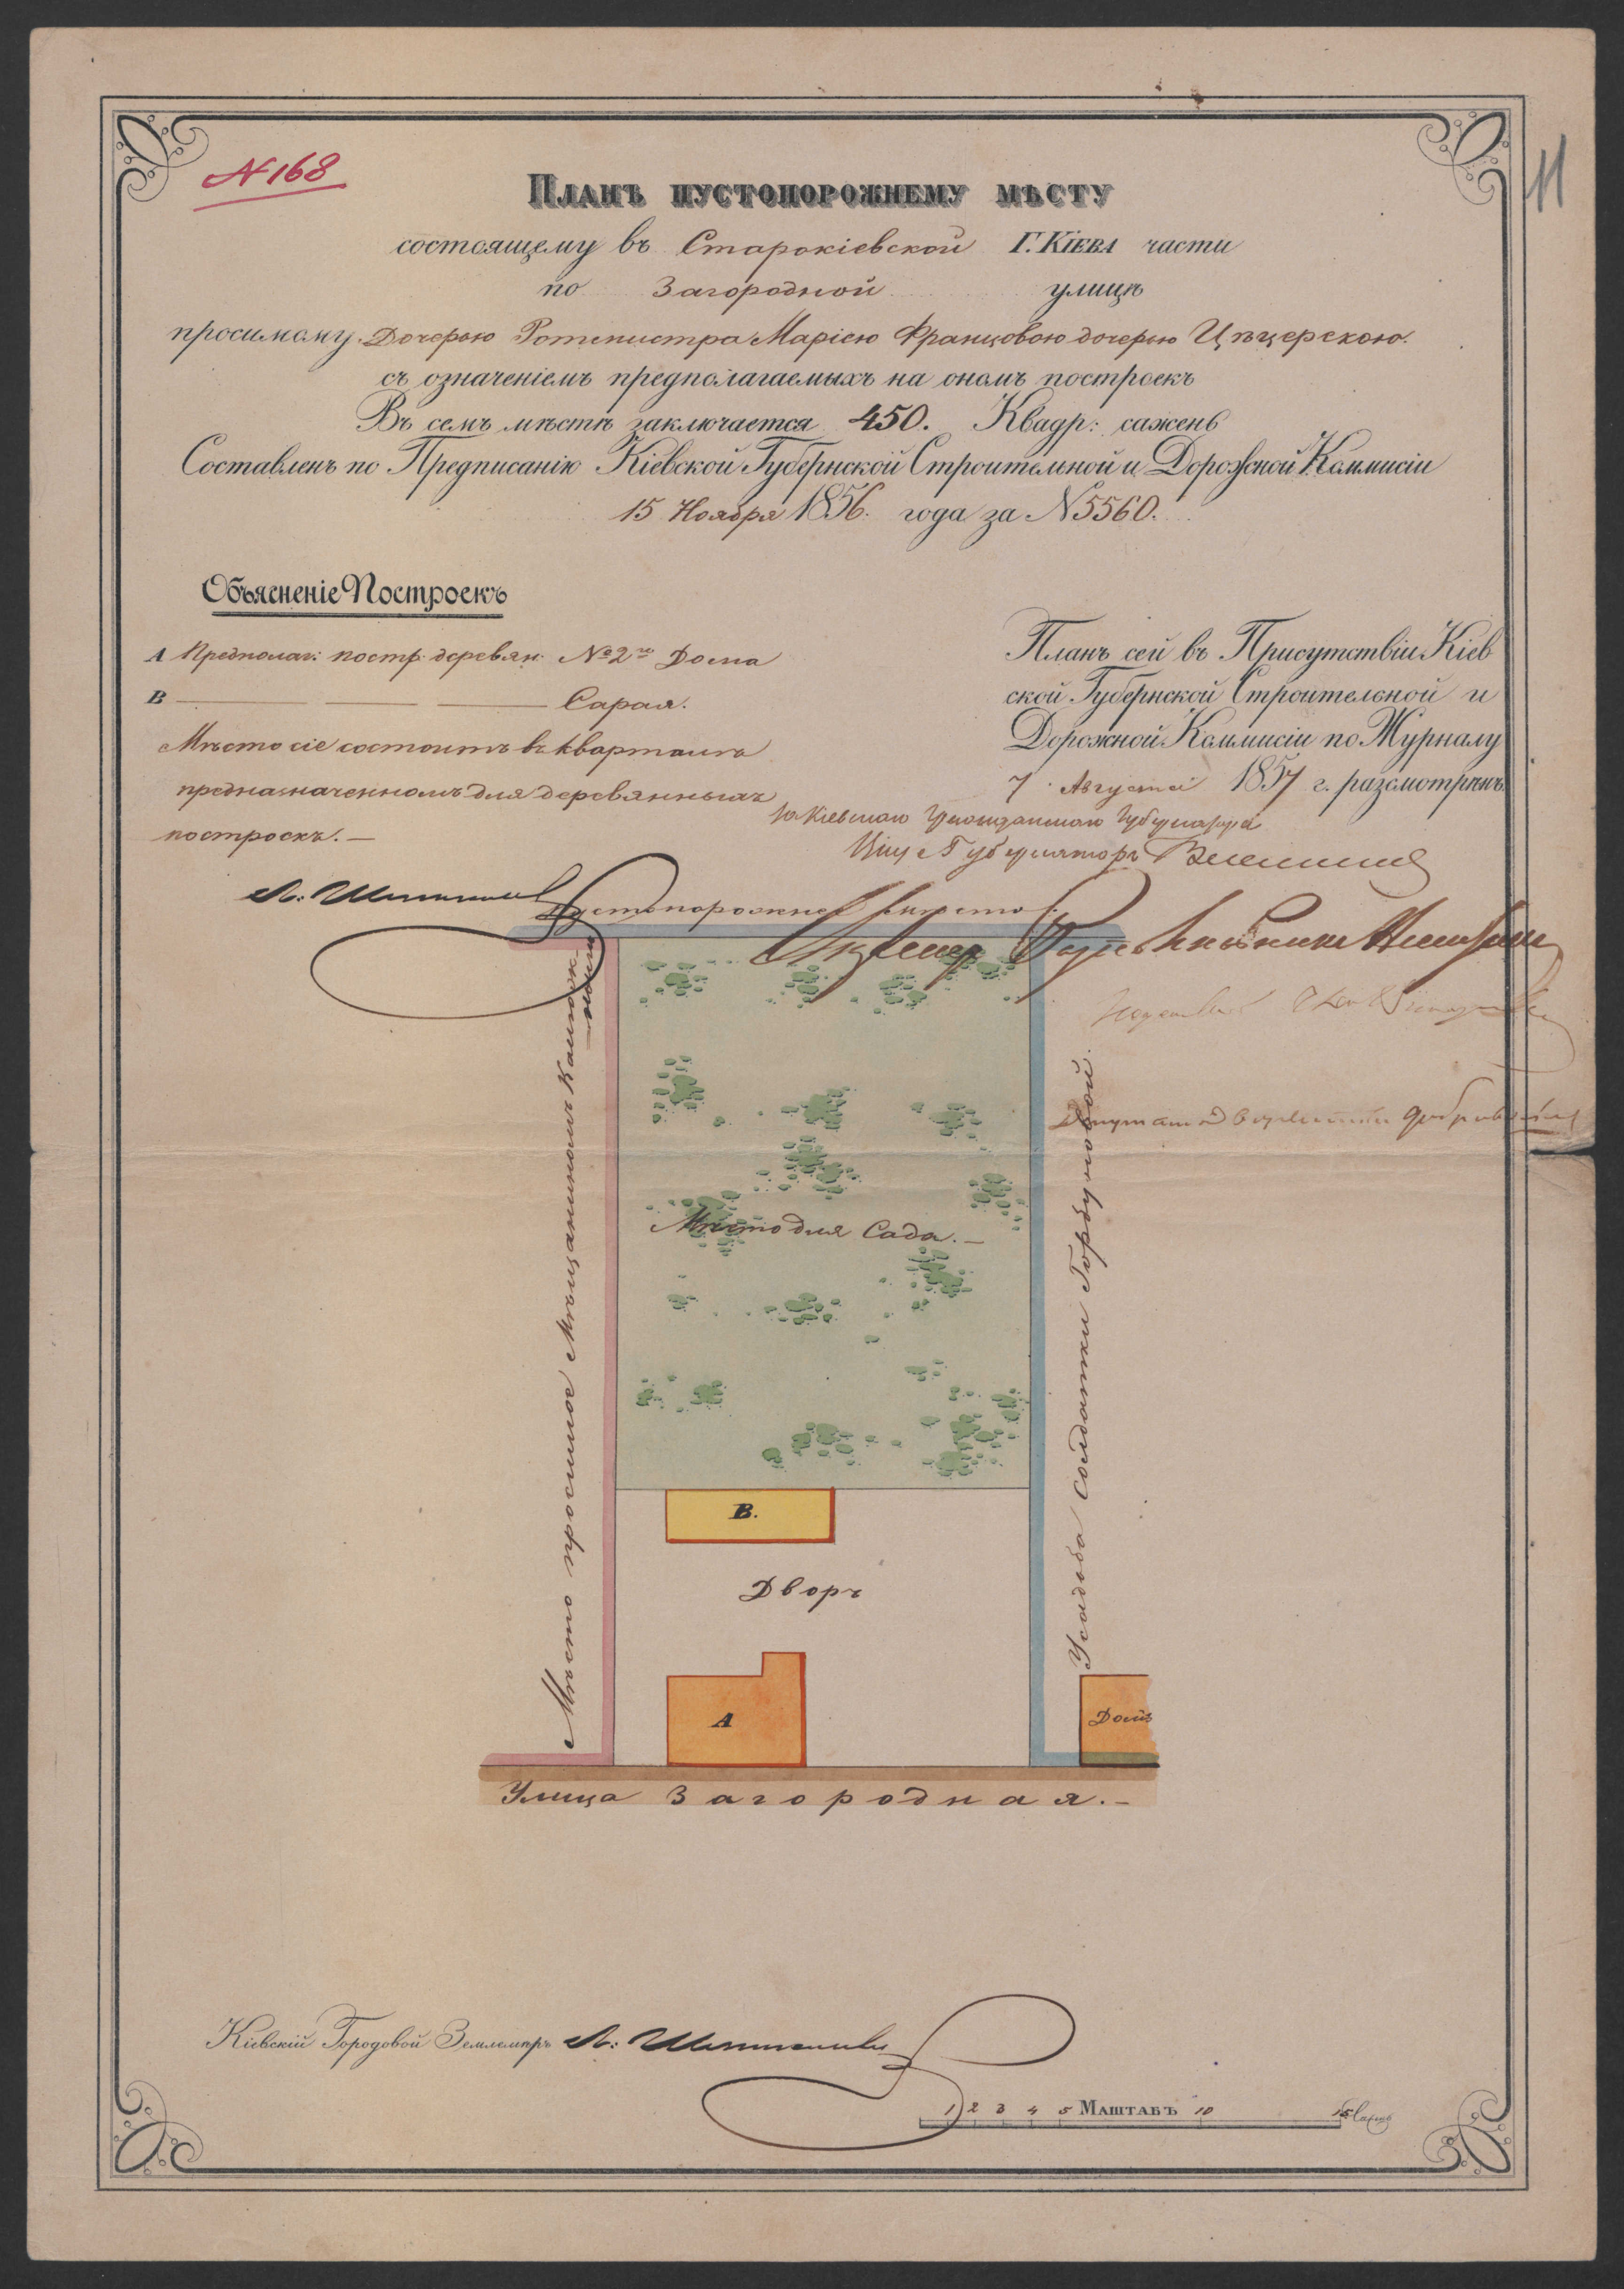 N 168
11
Планъ пустопорожнему мѣсту
состоящему въ Старокіевской Г. Кіева части
по Загородной улицѣ
просимому Дочерью Ротмистра Маріею Францовою дочерью Цѣцерскою.
съ означеніемъ предполагаемыхъ на ономъ построекъ
Въ семъ мѣстѣ заключается 450. Квадр: сажень
Составленъ по Предписанію Кіевской Губернской Строительной и Дорожной Коммисіи
15 Ноября 1856. года за N 5560.
Объясненіе Построекъ
А Предполаг: постр. деревян. №2го Дома
В Сарая.
Мѣсто сіе состоитъ въ кварталѣ
предназначенномъ для деревянныхъ
построекъ.
Планъ сей въ Присутствіи Кіев
ской Губернской Строительной и
Дорожной Коммисіи по Журналу
7 Августа 1857 г. разсмотрѣнъ
За Кіевскаго Гражданскаго Губернатора
Вице Губернаторъ
Пустопорожнее мѣсто.
Мѣсто просимое Мѣщаниномъ
Усадьба солдатки Горбуновой.
Депутатъ
Мѣсто для Сада.
В.
Дворъ
А
Домъ
Улица Загородная.
Кіевскій Городовой Землемѣръ А:
1 2 3 4 5 Маштабъ 10 15 Сажень